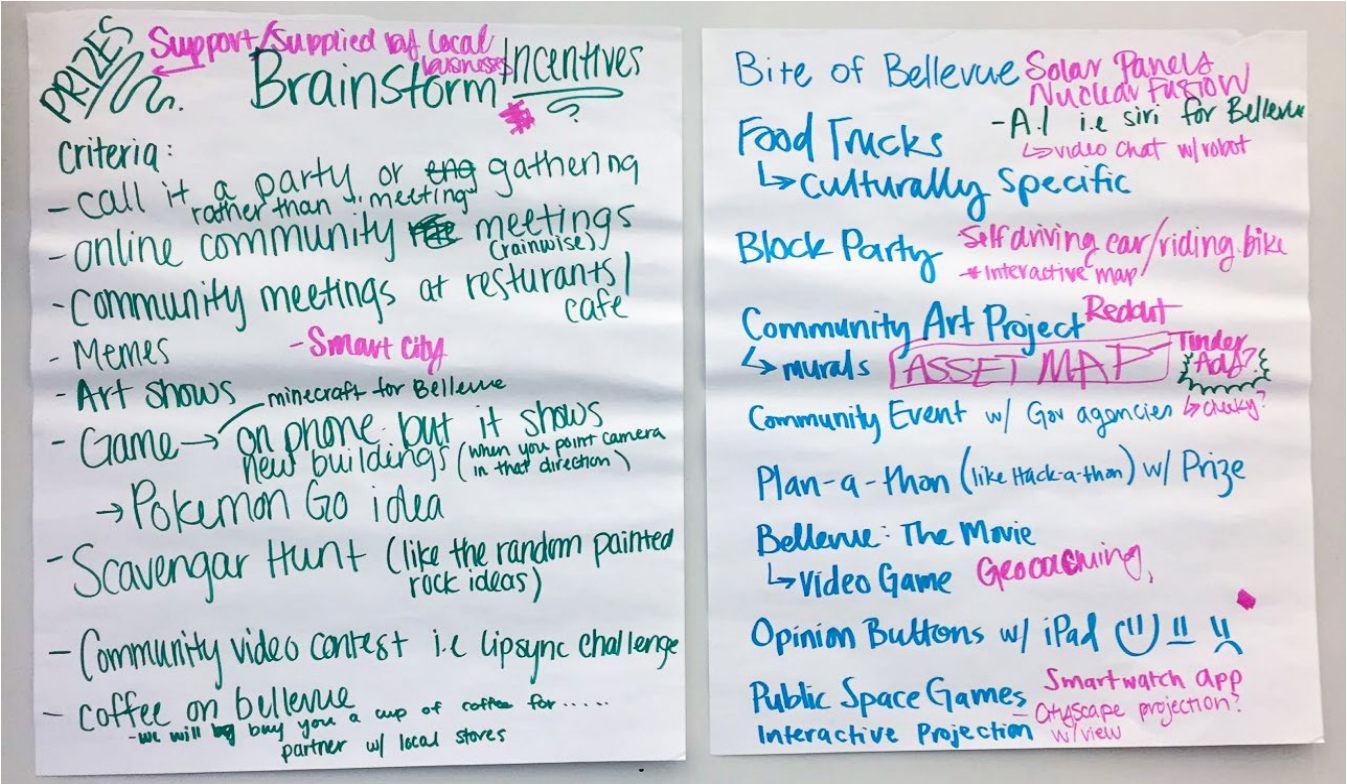 PRIZES
Support/Supplied by local
businesses
Brainstorm Incentives
?
criteria:
- call it a party or gathering
rather than meeting
- online community meetings
(rainwise)
- Community meetings at resturants/
cafe
- Memes
- Smart city
- Art shows
minecraft for Bellevue
- Game → on phone but it shows
new buildings (when you point camera
in that direction)
→ Pokemon Go idea
- Scavengar Hunt (like the random painted
rock ideas)
- Community video contest i.e Lipsync challenge
- coffee on bellevue
- we will buy you a cup of coffee for .....
partner w/ local stores
Bite of Bellevue
Solar Panels
Nuclear Fusion
- A.I i.e siri for Bellevue
↳ video chat w/robot
Food Trucks
↳ Culturally Specific
Block Party
Self driving car/riding bike
* Interactive map
Community Art Project
Reddit
↳ murals
ASSET MAP
Tinder
Ads?
↳ cheeky?
Community Event w/ Gov agencies
Plan-a-thon (like Hack-a-thon) w/ Prize
Bellevue: The Movie
↳ Video Game
Geocaching
Opinion Buttons w/ iPad
Public Space Games
Smartwatch app
- Cityscape projection?
w/view
Interactive Projection